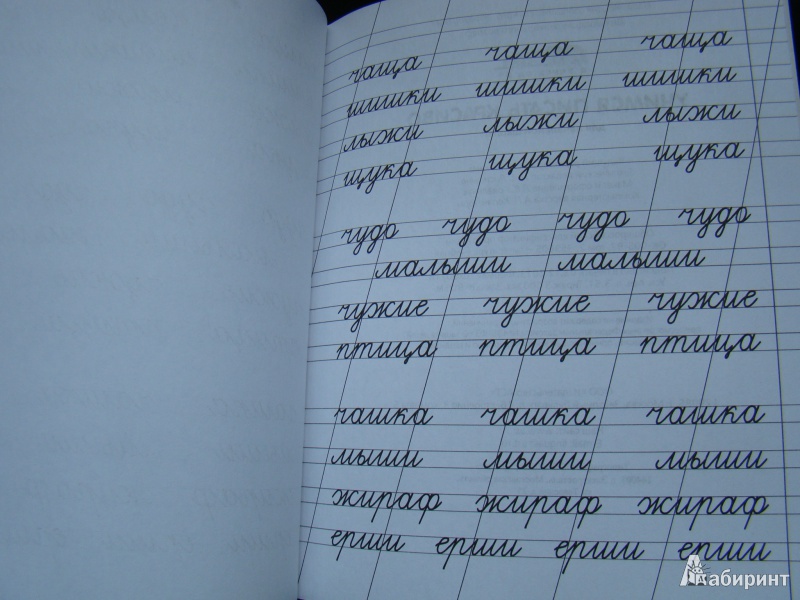 чаща чаща чаща
шишки шишки шишки
лыжи лыжи лыжи
щука щука щука
чудо чудо чудо чудо
малыши малыши
чужие чужие чужие
птица птица птица
чашка чашка чашка
мыши мыши мыши
жираф жираф жираф
ерши ерши ерши ерши
Лабиринт